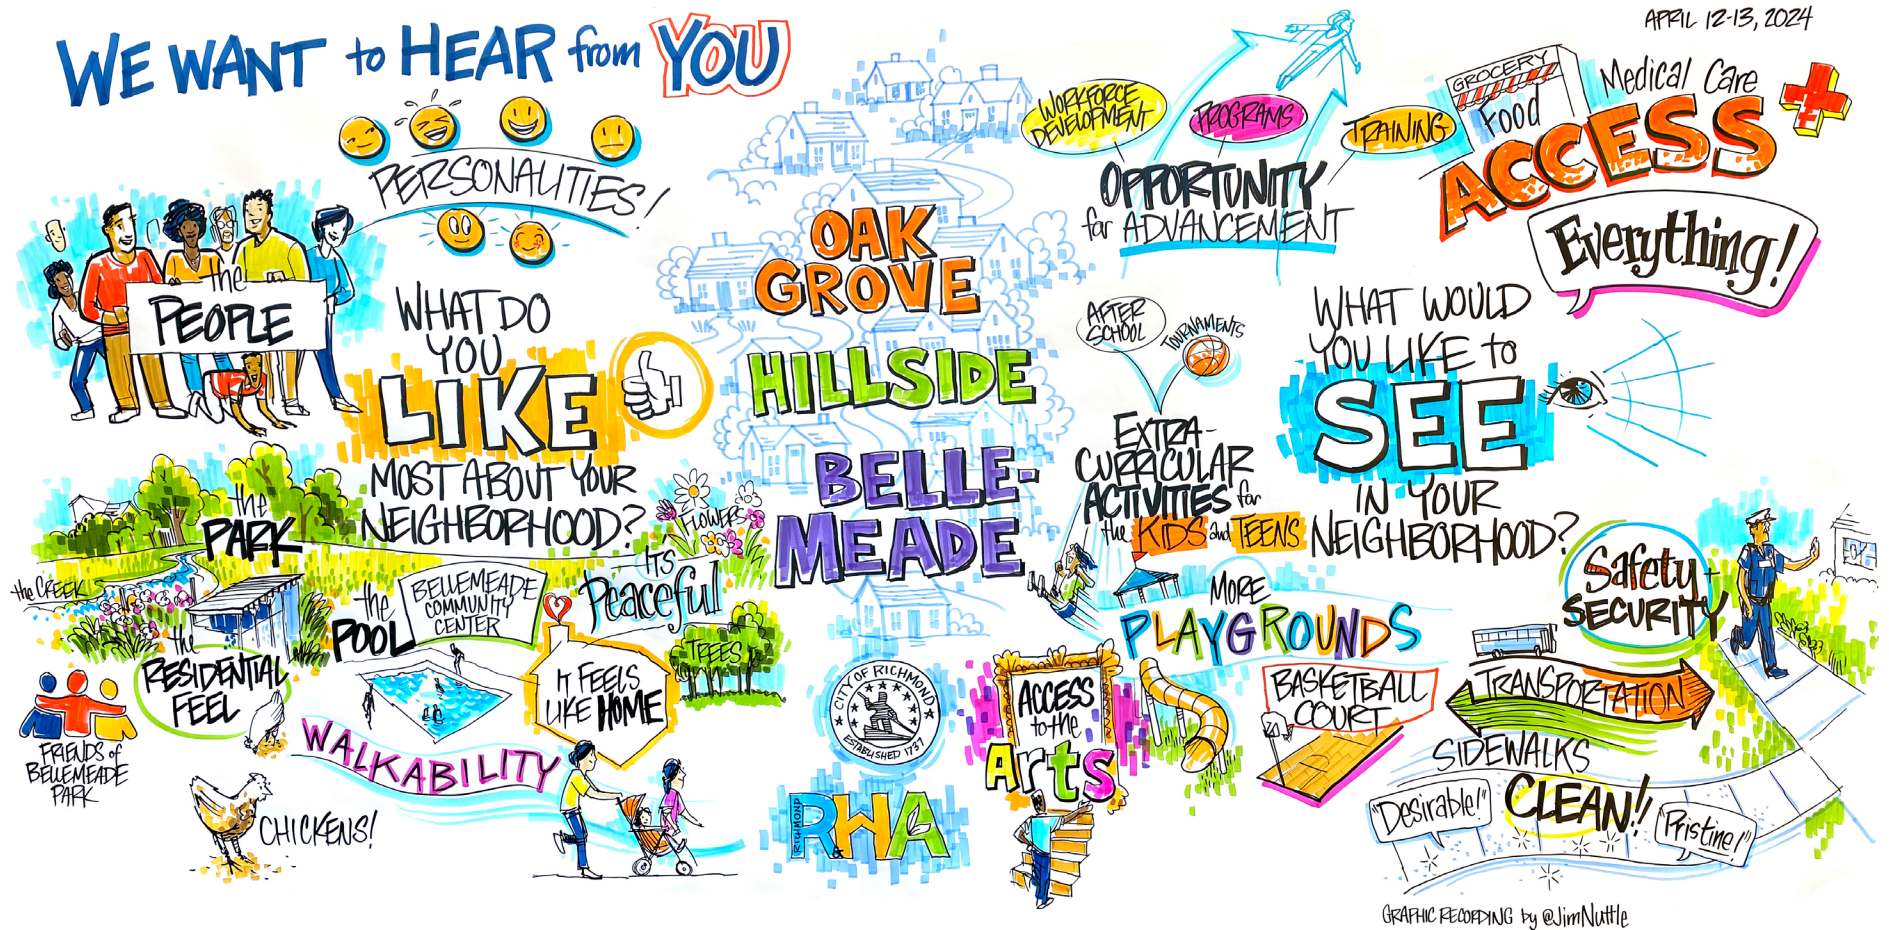 WE WANT to HEAR from YOU
APRIL 12-13, 2024
PERSONALITIES!
the
PEOPLE
WHAT DO
YOU
LIKE
MOST ABOUT YOUR
NEIGHBORHOOD?
the
PARK
the CREEK
FLOWERS
IT'S
Peaceful
the
POOL
BELLEMEADE
COMMUNITY
CENTER
TREES
the
RESIDENTIAL
FEEL
IT FEELS
LIKE HOME
FRIENDS of
BELLEMEADE
PARK
WALKABILITY
CHICKENS!
OAK
GROVE
HILLSIDE
BELLE-
MEADE
CITY OF RICHMOND
ESTABLISHED 1737
RICHMOND
RHA
WORKFORCE
DEVELOPMENT
PROGRAMS
TRAINING
OPPORTUNITY
for ADVANCEMENT
GROCERY
Food
Medical Care
ACCESS
Everything!
AFTER
SCHOOL
TOURNAMENTS
EXTRA-
CURRICULAR
ACTIVITIES for
the KIDS and TEENS
WHAT WOULD
YOU LIKE to
SEE
IN YOUR
NEIGHBORHOOD?
Safety +
SECURITY
MORE
PLAYGROUNDS
ACCESS
to the
Arts
BASKETBALL
COURT
TRANSPORTATION
SIDEWALKS
"Desirable!"
CLEAN!!
"Pristine!"
GRAPHIC RECORDING by @JimNuttle